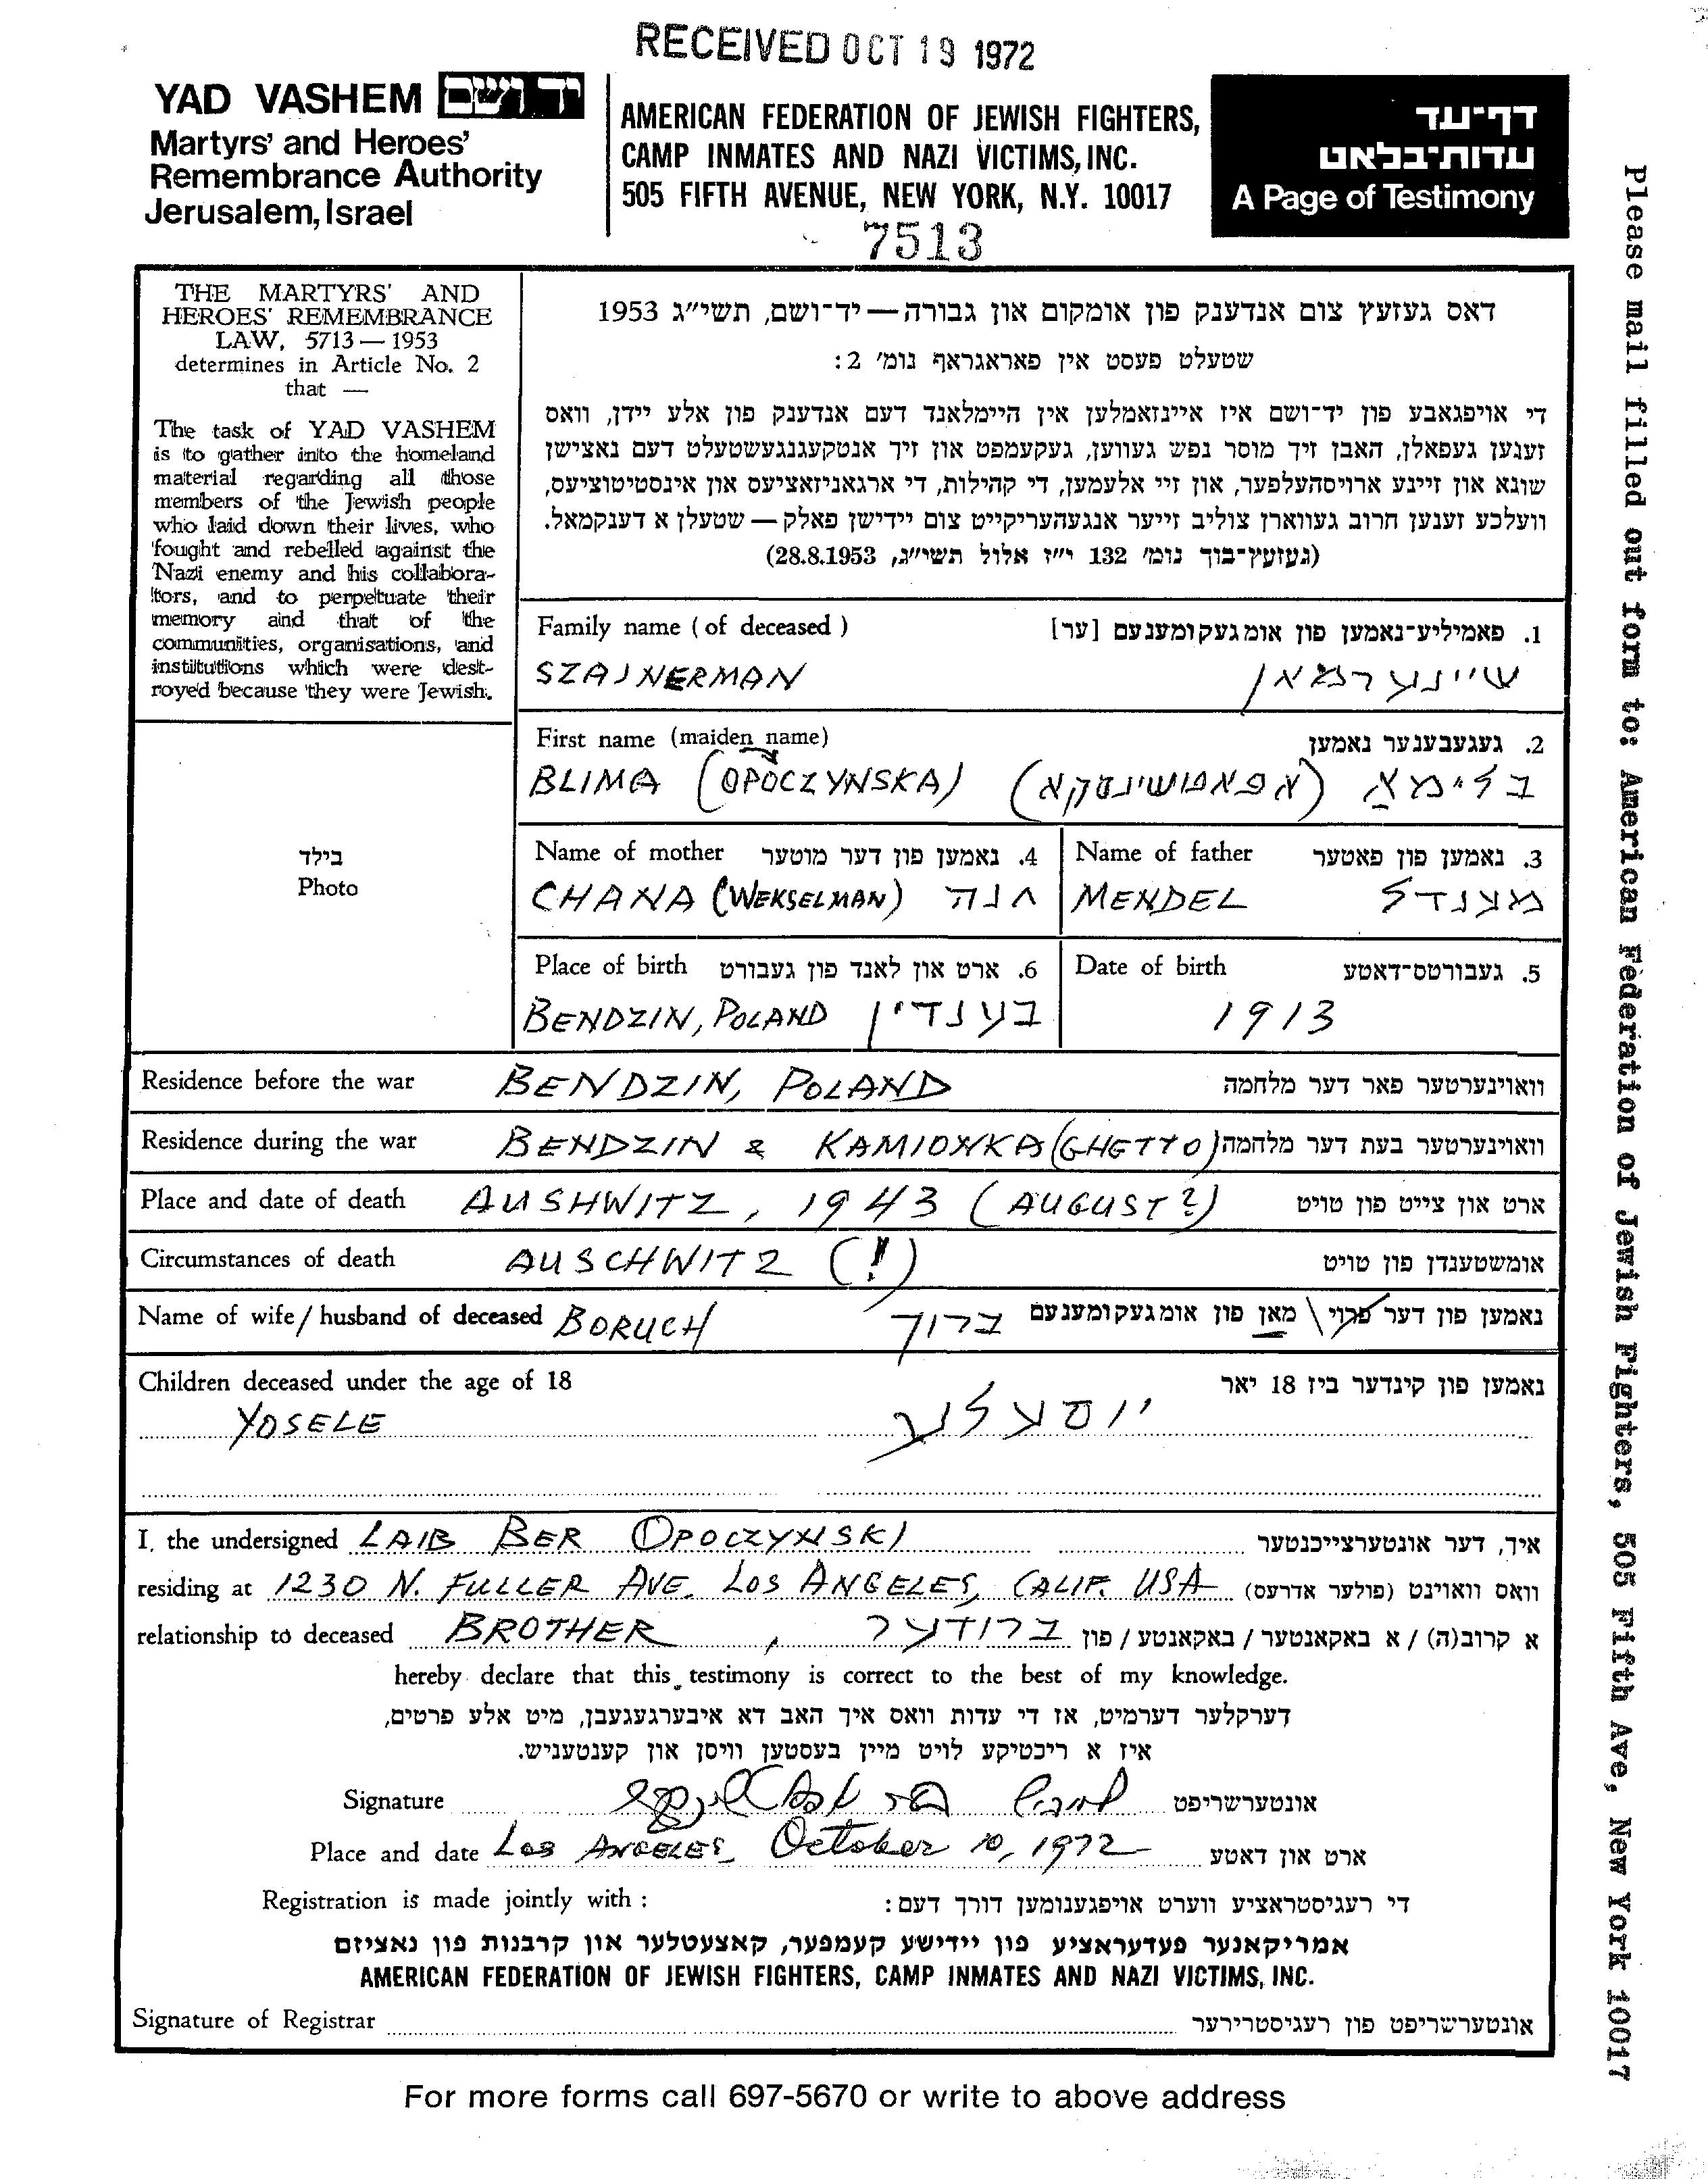 RECEIVED OCT 19 1972
YAD VASHEM יד ושם
Martyrs' and Heroes'
Remembrance Authority
Jerusalem, Israel
AMERICAN FEDERATION OF JEWISH FIGHTERS,
CAMP INMATES AND NAZI VICTIMS, INC.
505 FIFTH AVENUE, NEW YORK, N.Y. 10017
7513
דף־עד
עדות־בלאט
A Page of Testimony
THE MARTYRS' AND
HEROES' REMEMBRANCE
LAW, 5713 — 1953
determines in Article No. 2
that —
The task of YAD VASHEM
is to gather into the homeland
material regarding all those
members of the Jewish people
who laid down their lives, who
fought and rebelled against the
Nazi enemy and his collabora-
tors, and to perpetuate their
memory and that of the
communities, organisations, and
institutions which were dest-
royed because they were Jewish.
דאס געזעץ צום אנדענק פון אומקום און גבורה — יד־ושם, תשי״ג 1953
שטעלט פעסט אין פאראגראף נומ׳ 2:
די אויפגאבע פון יד־ושם איז איינזאמלען אין היימלאנד דעם אנדענק פון אלע יידן, וואס
זענען געפאלן, האבן זיך מוסר נפש געווען, געקעמפט און זיך אנטקעגנגעשטעלט דעם נאצישן
שונא און זיינע ארויסהעלפער, און זיי אלעמען, די קהילות, די ארגאניזאציעס און אינסטיטוציעס,
וועלכע זענען חרוב געווארן צוליב זייער אנגעהעריקייט צום יידישן פאלק — שטעלן א דענקמאל.
(געזעץ־בוך נומ׳ 132 י״ז אלול תשי״ג, 28.8.1953)
Family name (of deceased) 1. פאמיליע־נאמען פון אומגעקומענעם [ער]
SZAJNERMAN שיינערמאן
First name (maiden name) 2. געגעבענער נאמען
BLIMA (OPOCZYNSKA) בלימא (אפאטשינסקא)
Name of mother 4. נאמען פון דער מוטער
CHANA (WEKSELMAN) חנה
Name of father 3. נאמען פון פאטער
MENDEL מענדל
Place of birth 6. ארט און לאנד פון געבורט
BENDZIN, POLAND בענדין
Date of birth 5. געבורטס־דאטע
1913
בילד
Photo
Residence before the war BENDZIN, POLAND וואוינערטער פאר דער מלחמה
Residence during the war BENDZIN & KAMIONKA (GHETTO) וואוינערטער בעת דער מלחמה
Place and date of death AUSHWITZ, 1943 (AUGUST?) ארט און צייט פון טויט
Circumstances of death AUSCHWITZ (!) אומשטענדן פון טויט
Name of wife / husband of deceased BORUCH ברוך נאמען פון דער פרוי \ מאן פון אומגעקומענעם
Children deceased under the age of 18 נאמען פון קינדער ביז 18 יאר
YOSELE יוסעלע
I, the undersigned LAIB BER OPOCZYNSKI איך, דער אונטערצייכנטער
residing at 1230 N. FULLER AVE. LOS ANGELES, CALIF. USA וואס וואוינט (פולער אדרעס)
relationship to deceased BROTHER, ברודער א קרוב(ה) / א באקאנטער / באקאנטע / פון
hereby declare that this testimony is correct to the best of my knowledge.
דערקלער דערמיט, אז די עדות וואס איך האב דא איבערגעגעבן, מיט אלע פרטים,
איז א ריכטיקע לויט מיין בעסטען וויסן און קענטעניש.
Signature אונטערשריפט
Place and date LOS ANGELES October 10, 1972 ארט און דאטע
Registration is made jointly with : די רעגיסטראציע ווערט אויפגענומען דורך דעם:
אמריקאנער פעדעראציע פון יידישע קעמפער, קאצעטלער און קרבנות פון נאציזם
AMERICAN FEDERATION OF JEWISH FIGHTERS, CAMP INMATES AND NAZI VICTIMS, INC.
Signature of Registrar אונטערשריפט פון רעגיסטרירער
For more forms call 697-5670 or write to above address
Please mail filled out form to: American Federation of Jewish Fighters, 505 Fifth Ave, New York 10017